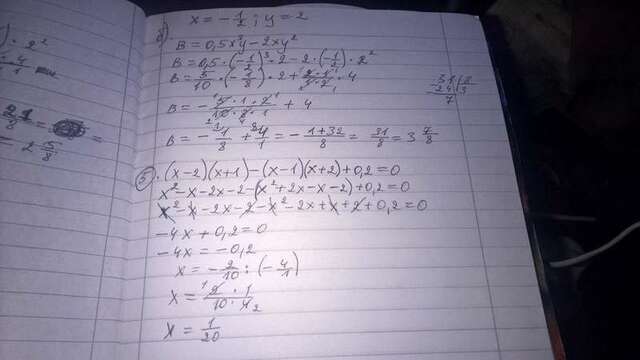 ) · 2²
· 4
1
21/8 =
= 2 5/8
б) x = -1/2 ; y = 2
B = 0,5x³y - 2xy²
B = 0,5 · (-1/2)³ · 2 - 2 · (-1/2) · 2²
B = 5/10 · (-1/8) · 2 + 2·1/1·2 · 4
B = - 5 · 1 · 2/10 · 8 · 1 + 4
B = - 1/8 + 4/1 = - 1+32/8 = 31/8 = 3 7/8
31 8
-24 3
7
5. (x-2)(x+1)-(x-1)(x+2)+0,2=0
x²-x-2x-2-(x²+2x-x-2)+0,2=0
x²-x-2x-2-x²-2x+x+2+0,2=0
-4x+0,2=0
-4x=-0,2
x=-2/10 : (-4/1)
x= 2 · 1/10 · 4 2
x= 1/20